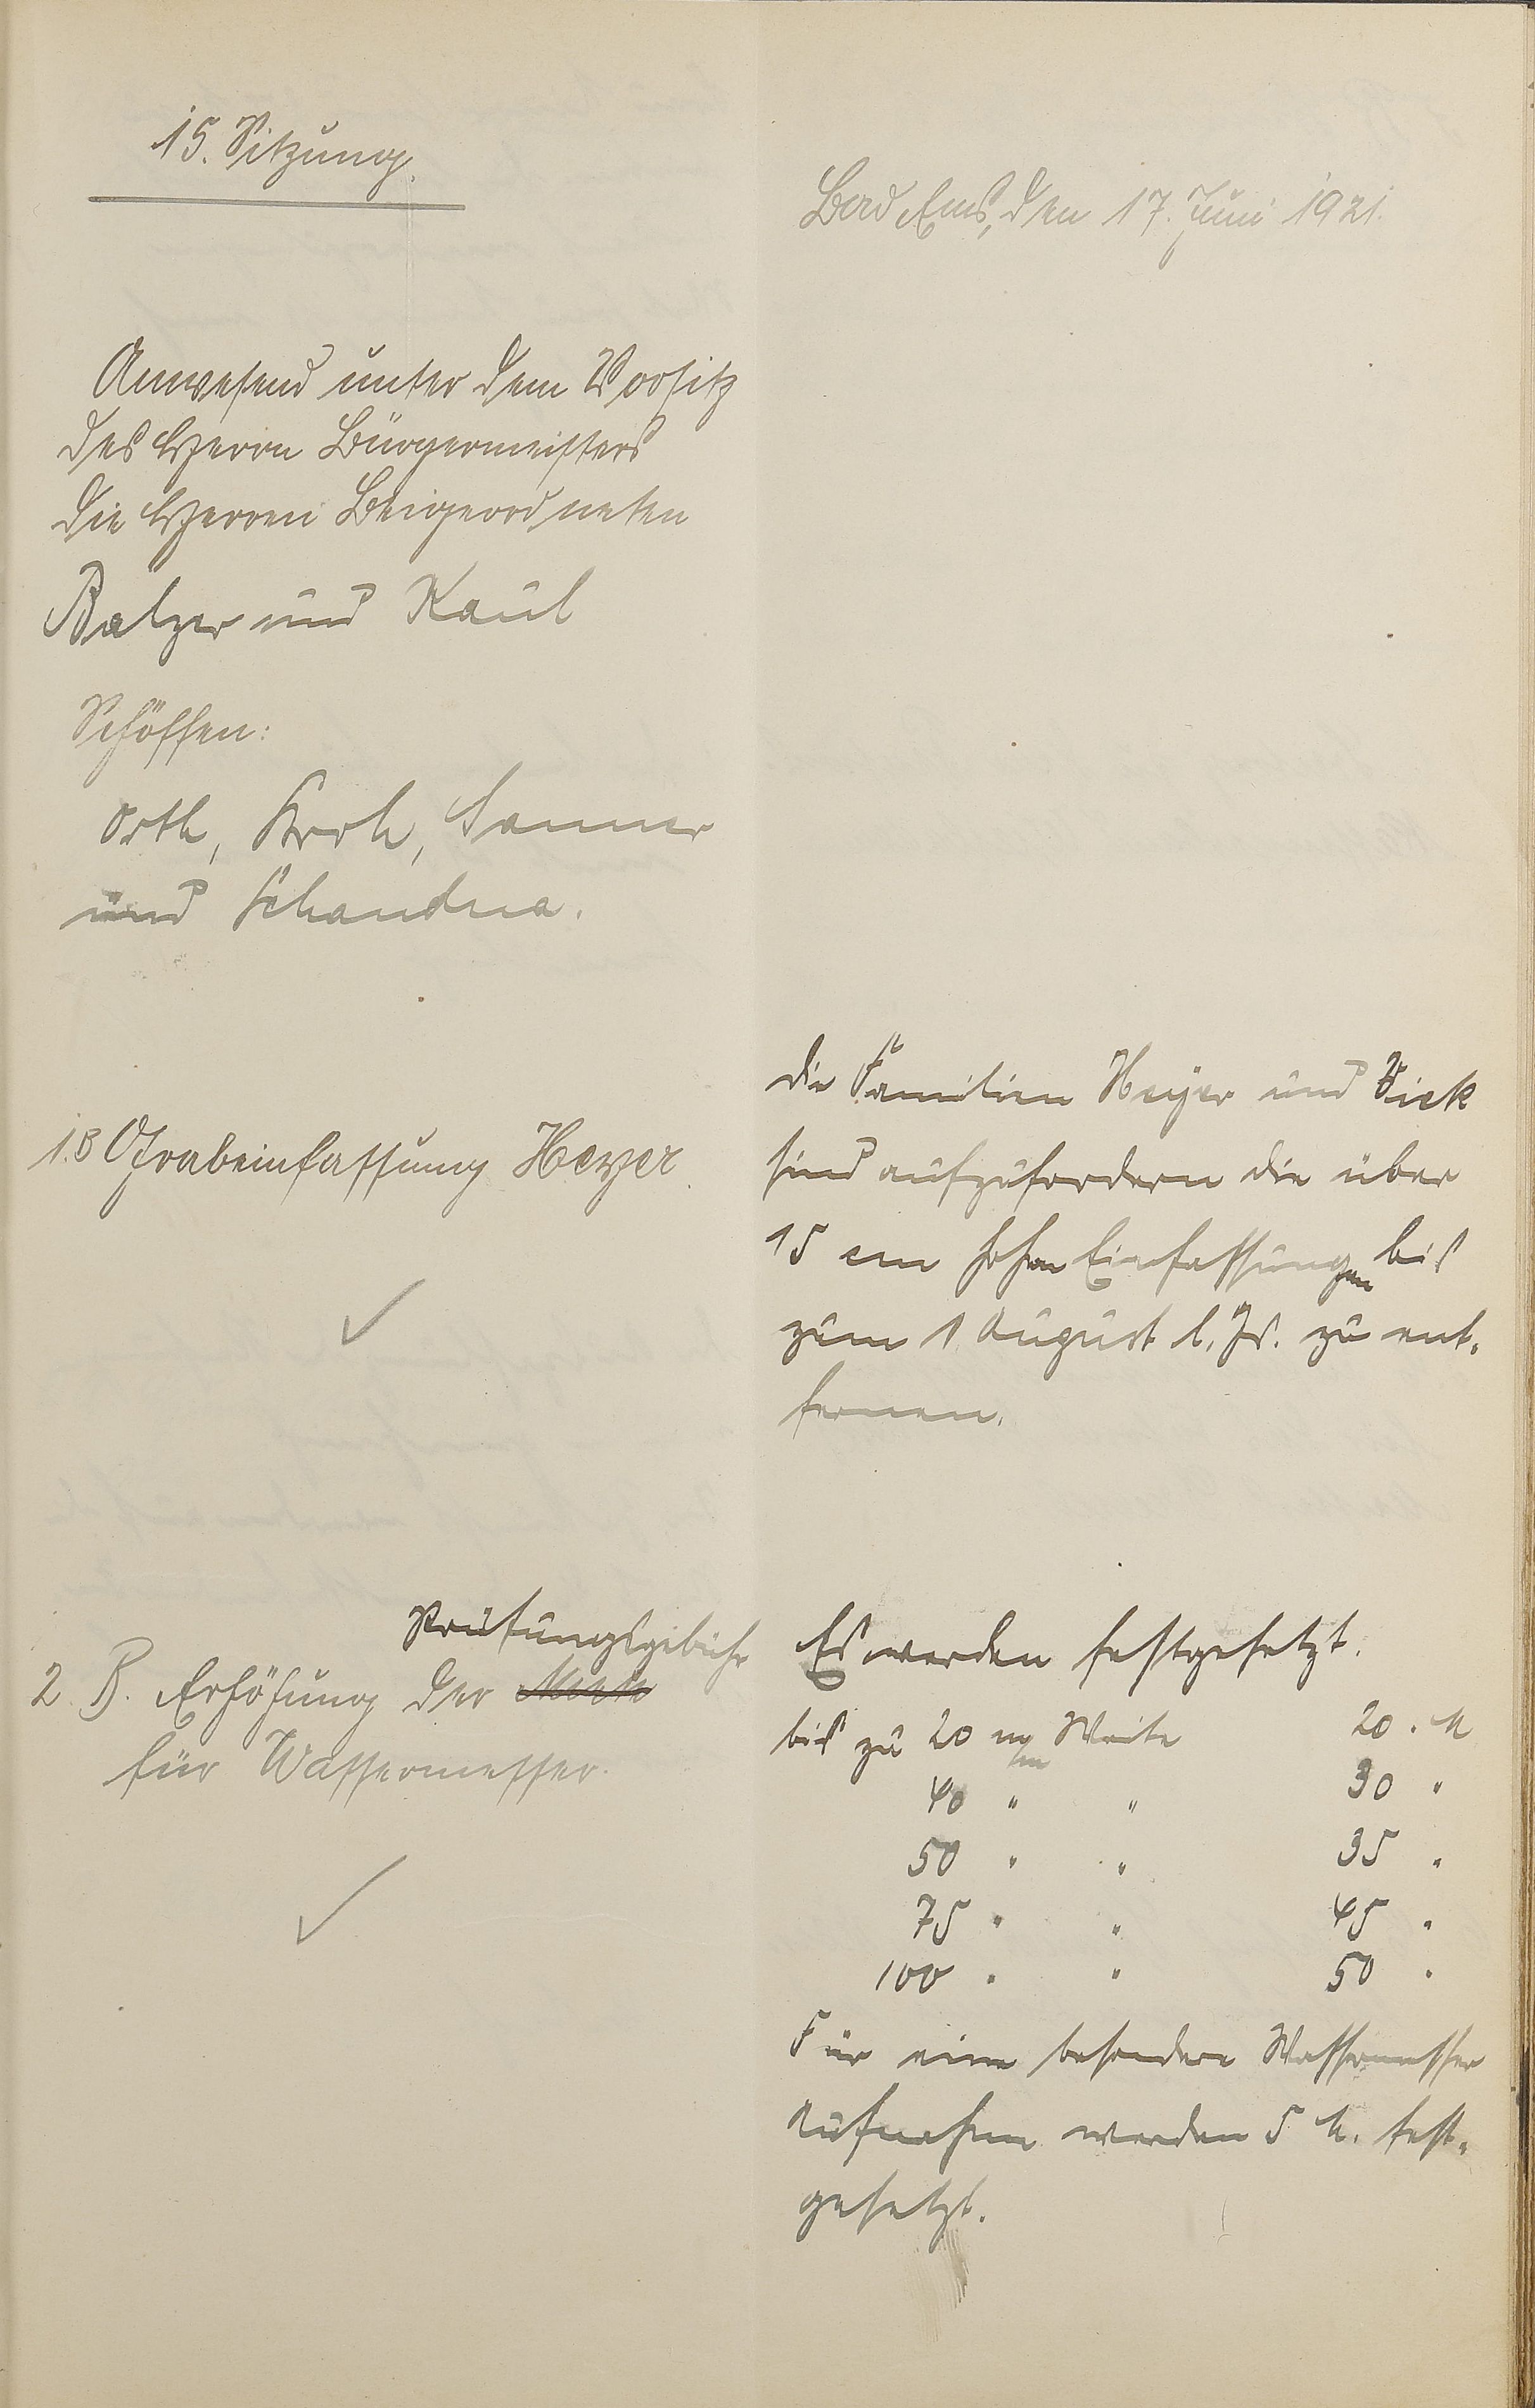 15. Sitzung.
Bad Ems, den 17. Juni 1921.
Anwesend unter dem Vorsitz
des Herrn Bürgermeisters
die Herren Beigeordneten
Balzer und Kaul
Schöffen:
Orth, Kroh, Sanner
und Schandua.
1.B Grabeinfassung Heyer.
Die Familien Heyer und Vick
sind aufzufordern die über
15 cm hohen Einfassungen bis
zum 1 August l. Js. zu ent-
fernen.
Prüfungsgebühr
2 B. Erhöhung der Miete
für Wassermesser.
Es werden festgesetzt.
bis zu 20 m/m Weite 20. M
40 " " 30 "
50 " " 35 "
75 " " 45 "
100 " " 50 "
Für eine besondere Wassermesser
Aufnahme werden 5 M. fest-
gesetzt.